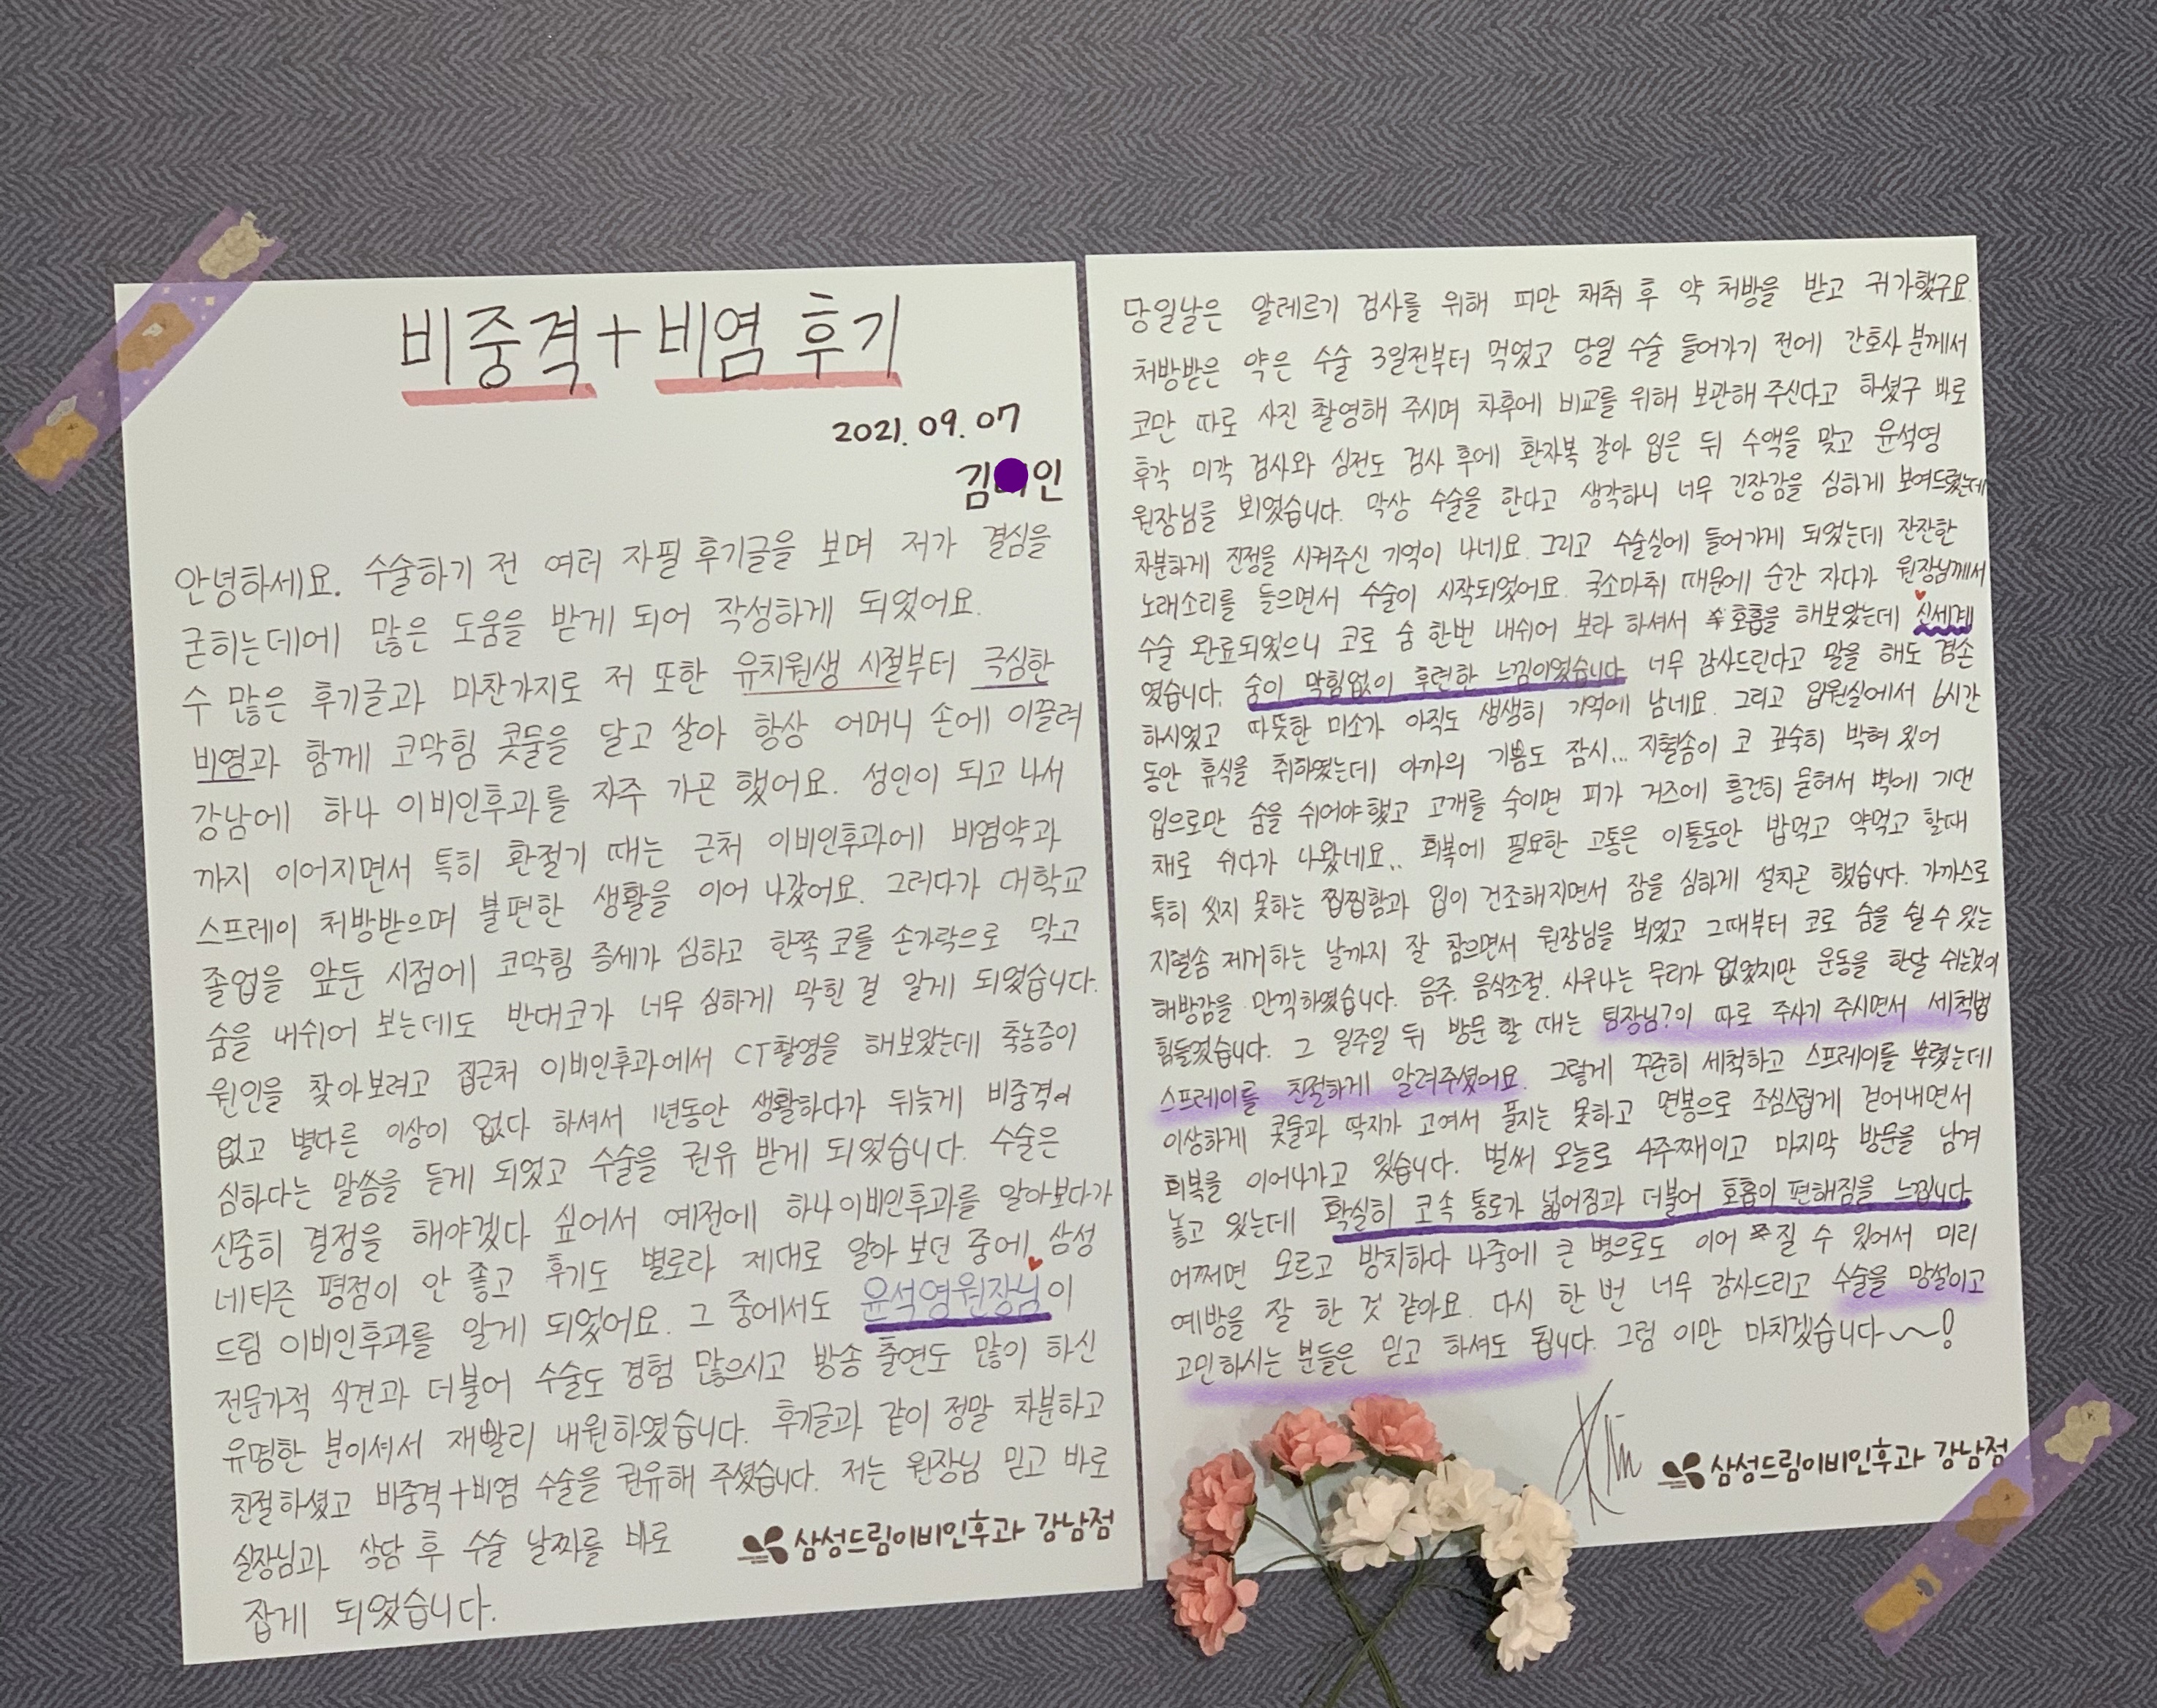 비중격+비염 후기
2021. 09. 07
김 인
안녕하세요. 수술하기 전 여러 자필 후기글을 보며 저가 결심을
굳히는데에 많은 도움을 받게 되어 작성하게 되었어요.
수 많은 후기글과 마찬가지로 저 또한 유치원생 시절부터 극심한
비염과 함께 코막힘 콧물을 달고 살아 항상 어머니 손에 이끌려
강남에 하나 이비인후과를 자주 가곤 했어요. 성인이 되고 나서
까지 이어지면서 특히 환절기 때는 근처 이비인후과에 비염약과
스프레이 처방받으며 불편한 생활을 이어 나갔어요. 그러다가 대학교
졸업을 앞둔 시점에 코막힘 증세가 심하고 한쪽 코를 손가락으로 막고
숨을 내쉬어 보는데도 반대코가 너무 심하게 막힌 걸 알게 되었습니다.
원인을 찾아보려고 집근처 이비인후과에서 CT촬영을 해보았는데 축농증이
없고 별다른 이상이 없다 하셔서 1년동안 생활하다가 뒤늦게 비중격이
심하다는 말씀을 듣게 되었고 수술을 권유 받게 되었습니다. 수술은
신중히 결정을 해야겠다 싶어서 예전에 하나이비인후과를 알아보다가
네티즌 평점이 안 좋고 후기도 별로라 제대로 알아 보던 중에 삼성
드림 이비인후과를 알게 되었어요. 그 중에서도 윤석영원장님이
전문가적 식견과 더불어 수술도 경험 많으시고 방송 출연도 많이 하신
유명한 분이셔서 재빨리 내원하였습니다. 후기글과 같이 정말 차분하고
친절하셨고 비중격+비염 수술을 권유해 주셨습니다. 저는 원장님 믿고 바로
실장님과 상담 후 수술 날짜를 바로
잡게 되었습니다.
삼성드림이비인후과 강남점
당일날은 알레르기 검사를 위해 피만 채취 후 약 처방을 받고 귀가했구요
처방받은 약은 수술 3일전부터 먹었고 당일 수술 들어가기 전에 간호사 분께서
코만 따로 사진 촬영해 주시며 차후에 비교를 위해 보관해 주신다고 하셨구 바로
후각 미각 검사와 심전도 검사 후에 환자복 갈아 입은 뒤 수액을 맞고 윤석영
원장님을 뵈었습니다. 막상 수술을 한다고 생각하니 너무 긴장감을 심하게 보여드렸는데
차분하게 진정을 시켜주신 기억이 나네요. 그리고 수술실에 들어가게 되었는데 잔잔한
노래소리를 들으면서 수술이 시작되었어요. 국소마취 때문에 순간 자다가 원장님께서
수술 완료되었으니 코로 숨 한번 내쉬어 보라 하셔서 호흡을 해보았는데 신세계
였습니다. 숨이 막힘없이 후련한 느낌이였습니다 너무 감사드린다고 말을 해도 겸손
하시었고 따뜻한 미소가 아직도 생생히 기억에 남네요. 그리고 입원실에서 6시간
동안 휴식을 취하였는데 아까의 기쁨도 잠시... 지혈솜이 코 깊숙히 박혀 있어
입으로만 숨을 쉬어야 했고 고개를 숙이면 피가 거즈에 흥건히 묻혀서 벽에 기댄
채로 쉬다가 나왔네요.. 회복에 필요한 고통은 이틀동안 밥먹고 약먹고 할때
특히 씻지 못하는 찝찝함과 입이 건조해지면서 잠을 심하게 설치곤 했습니다. 가까스로
지혈솜 제거하는 날까지 잘 참으면서 원장님을 뵈었고 그때부터 코로 숨을 쉴 수 있는
해방감을 만끽하였습니다. 음주, 음식조절, 사우나는 무리가 없었지만 운동을 한달 쉬는것이
힘들었습니다. 그 일주일 뒤 방문 할 때는 팀장님?이 따로 주사기 주시면서 세척법
스프레이를 친절하게 알려주셨어요. 그렇게 꾸준히 세척하고 스프레이를 뿌렸는데
이상하게 콧물과 딱지가 고여서 풀지는 못하고 면봉으로 조심스럽게 걷어내면서
회복을 이어나가고 있습니다. 벌써 오늘로 4주째이고 마지막 방문을 남겨
놓고 있는데 확실히 코속 통로가 넓어짐과 더불어 호흡이 편해짐을 느낍니다
어쩌면 모르고 방치하다 나중에 큰 병으로도 이어 질 수 있어서 미리
예방을 잘 한 것 같아요. 다시 한 번 너무 감사드리고 수술을 망설이고
고민하시는 분들은 믿고 하셔도 됩니다. 그럼 이만 마치겠습니다~!
삼성드림이비인후과 강남점